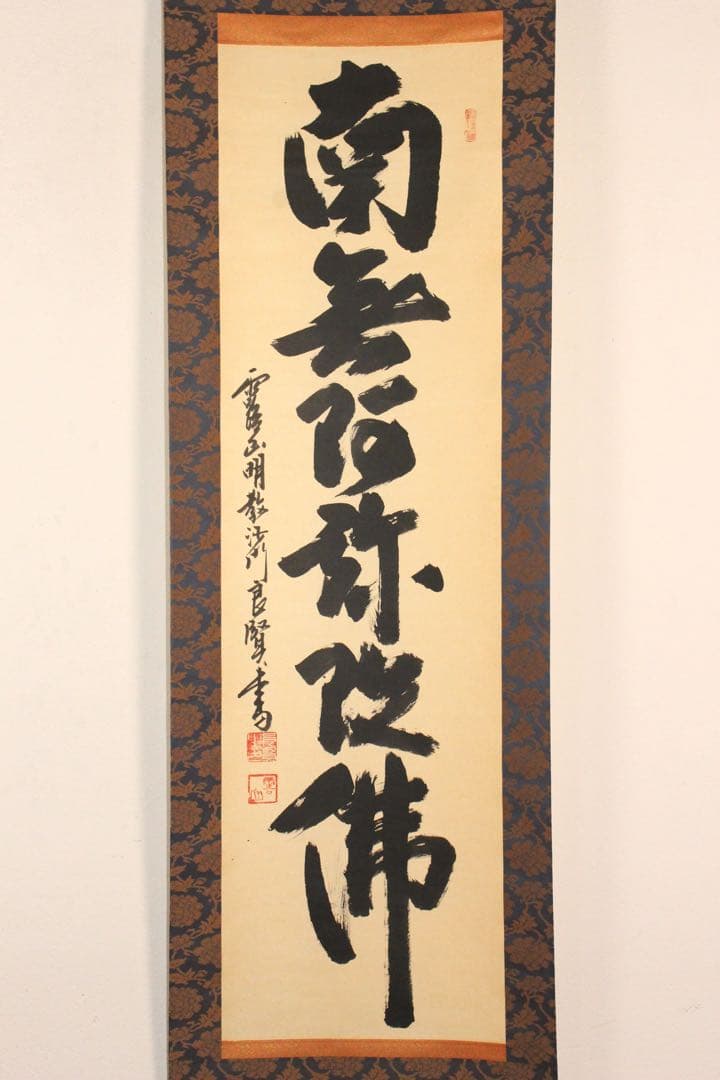 南無阿弥陀佛
靈山明教沙門良賢書